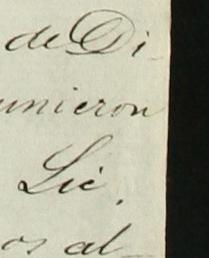 de Di-
unieron
Lic.
os al